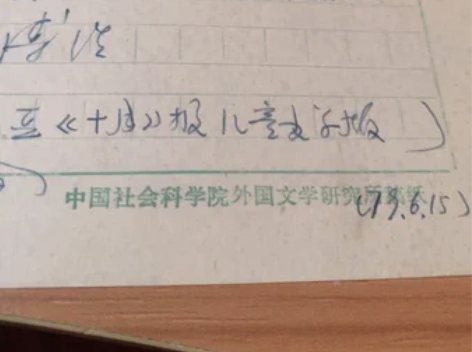 《十月》报儿童文学版）
中国社会科学院外国文学研究所稿纸
(79.6.15)